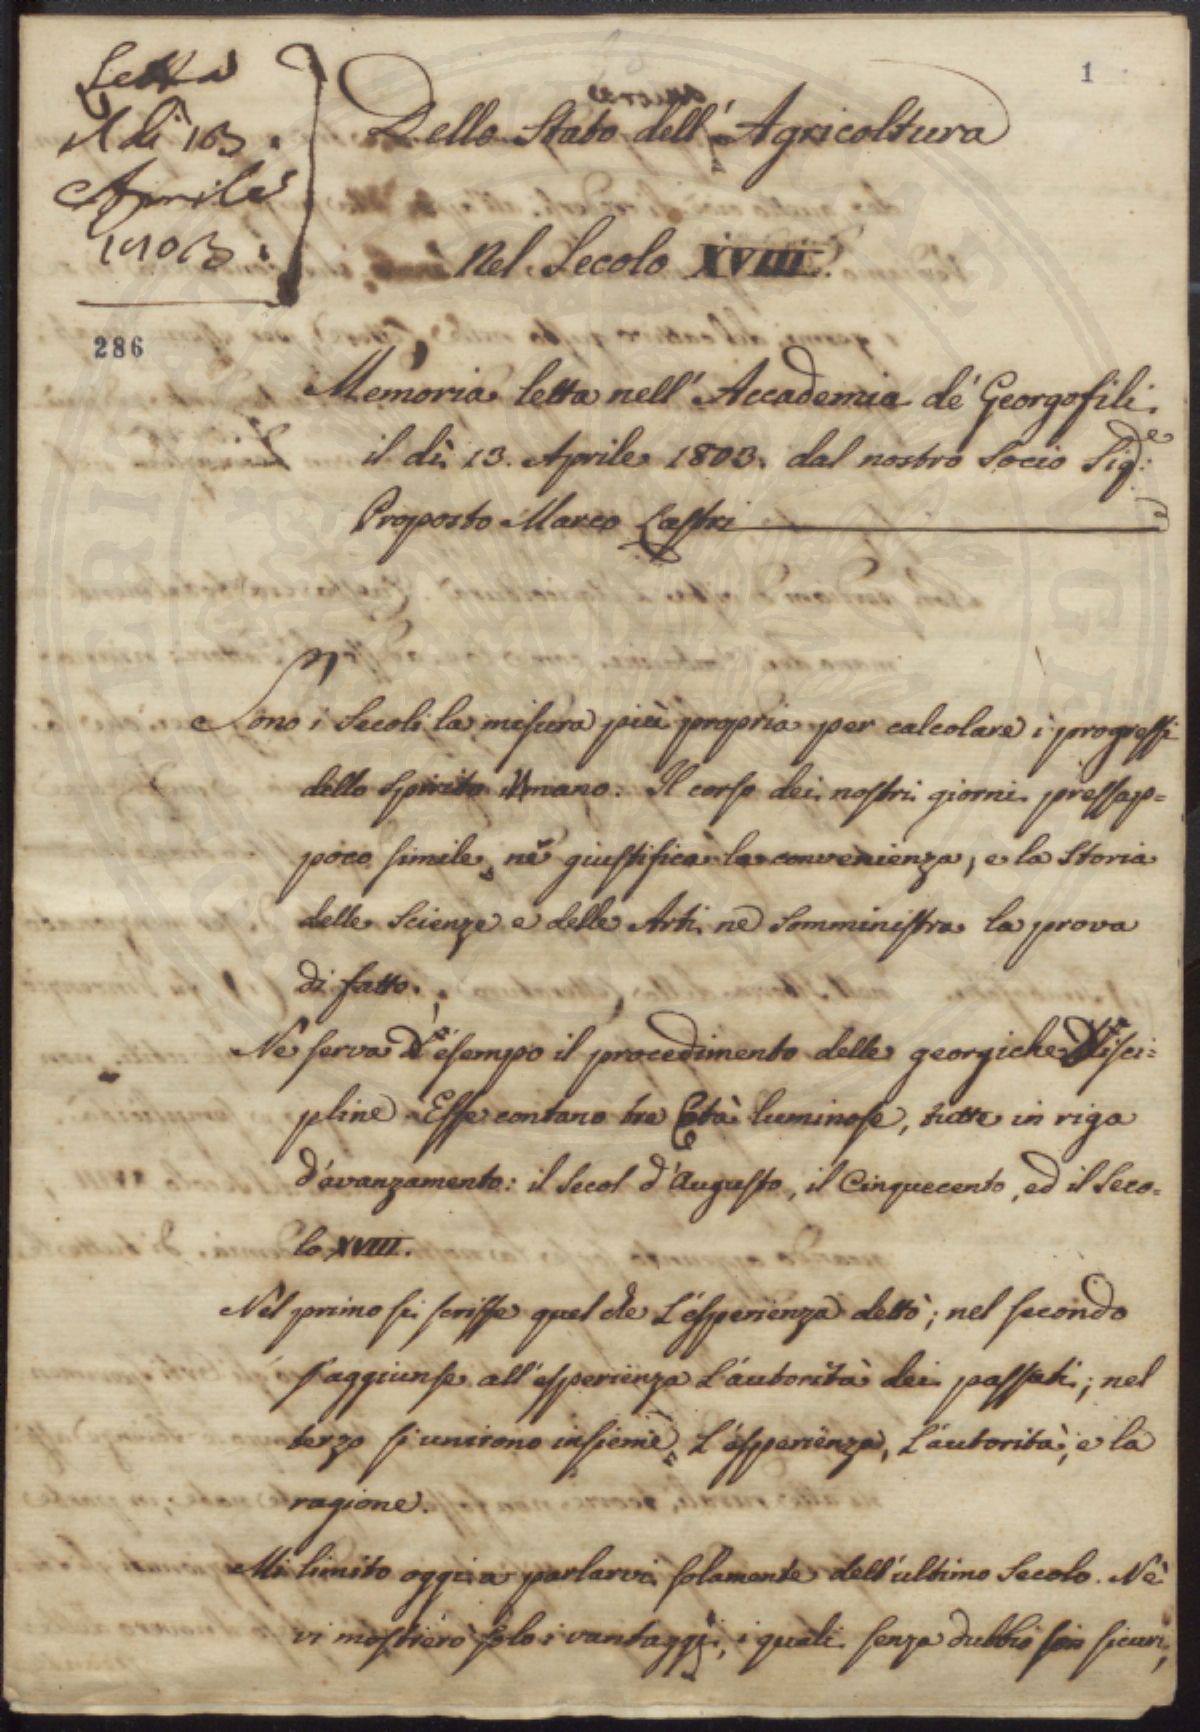 Letta
Adi 13.
Aprile
1803.
1
286
Dello Stato dell' Agricoltura
Nel Secolo XVIII.
Memoria letta nell' Accademia de' Georgofili
il dì 13. Aprile 1803. dal nostro Socio Sig.e
Proposto Marco Lastri
Sono i Secoli la misura più propria per calcolare i progressi
dello Spirito Umano. Il corso dei nostri giorni pressap=
poco simile, ne giustifica la convenienza, e la Storia
delle Scienze e delle Arti ne somministra la prova
di fatto.
Ne serva d'esempo il procedimento delle georgiche Disci=
pline. Esse contano tre Età luminose, tutte in riga
d'avanzamento: il Secol d'Augusto, il Cinquecento, ed il Seco=
lo XVIII.
Nel primo si scrisse quel che l'esperienza dettò; nel secondo
s'aggiunse all'esperienza l'autorità dei passati; nel
terzo si unirono insieme, l'esperienza, l'autorità, e la
ragione.
Mi limito oggi a parlarvi solamente dell'ultimo Secolo. Nè
vi mostrerò solo i vantaggi, i quali senza dubbio son sicuri,